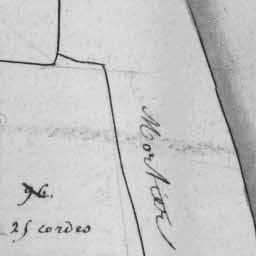 Mortier
96.
25 cordes